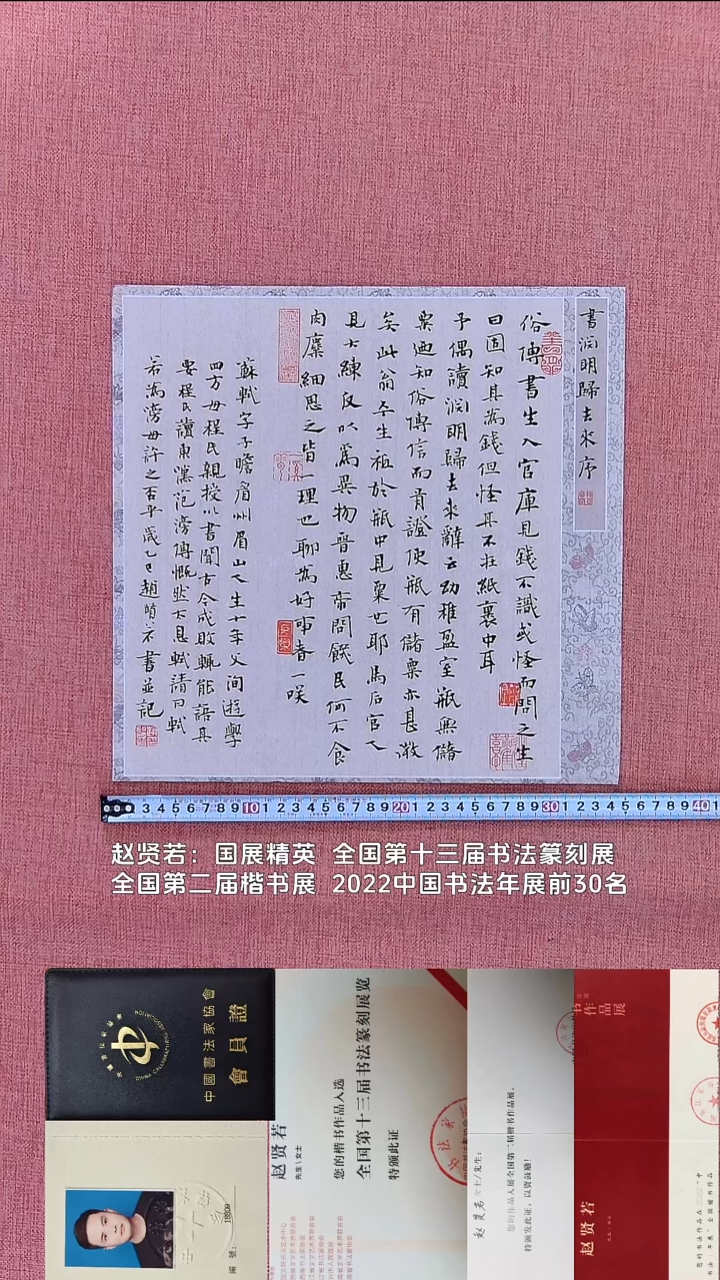 書淵明歸去來序
俗傳書生入官庫見錢不識或怪而問之生
曰固知其為錢但怪其不在紙裹中耳
予偶讀淵明歸去來辭云幼稚盈室瓶無儲
粟迺知俗傳信而有證使瓶有儲粟亦甚微
矣此翁平生祗於瓶中見粟也耶馬后宮人
見大練反以為異物晉惠帝問餓民何不食
肉糜細思之皆一理也聊為好事者一咲
蘇軾字子瞻眉州眉山人生十年父洵遊學
四方母程氏親授以書聞古今成敗輒能語其
要程氏讀東漢范滂傳慨然太息軾請曰軾
若為滂母許之否乎歲乙巳趙賢若書並記
3 4 5 6 7 8 9 10 1 2 3 4 5 6 7 8 9 20 1 2 3 4 5 6 7 8 9 30 1 2 3 4 5 6 7 8 9 40 1
赵贤若：国展精英 全国第十三届书法篆刻展
全国第二届楷书展 2022中国书法年展前30名
中國書法家協會
會員證
赵贤若
先生\女士
您的楷书作品入选
全国第十三届书法篆刻展览
特颁此证
赵贤若女士/先生:
您的作品入展全国第二届楷书作品展,
特颁发此证，以资鼓励!
作品展
赵贤若
編號: